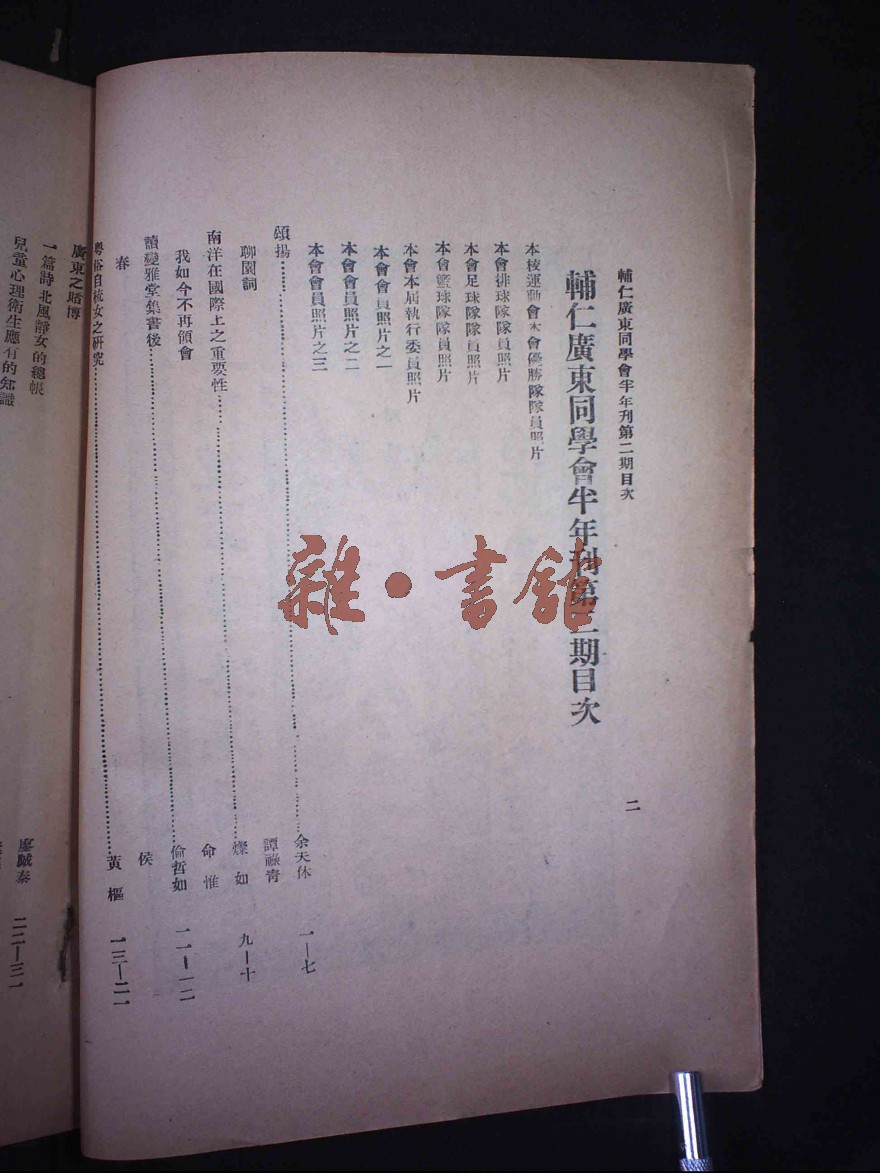 輔仁廣東同學會半年刊第二期目次
二
輔仁廣東同學會半年刊第二期目次
本校運動會本會優勝隊隊員照片
本會排球隊隊員照片
本會足球隊隊員照片
本會籃球隊隊員照片
本會本屆執行委員照片
本會會員照片之一
本會會員照片之二
本會會員照片之三
頌揚 余天休 一—七
聊園詞 譚祿青
南洋在國際上之重要性 燦如 九—十
我如今不再領會 命惟
讀變雅堂集書後 倫哲如 一一—一二
春 侯
粵俗自梳女之研究 黃樞 一三—二一
廣東之賭博
一篇詩北風靜女的總帳
兒童心理衛生應有的知識 秦 二二—三一
雜·書館